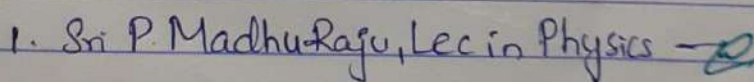 1. Sri P. MadhuRaju, Lec in Physics –